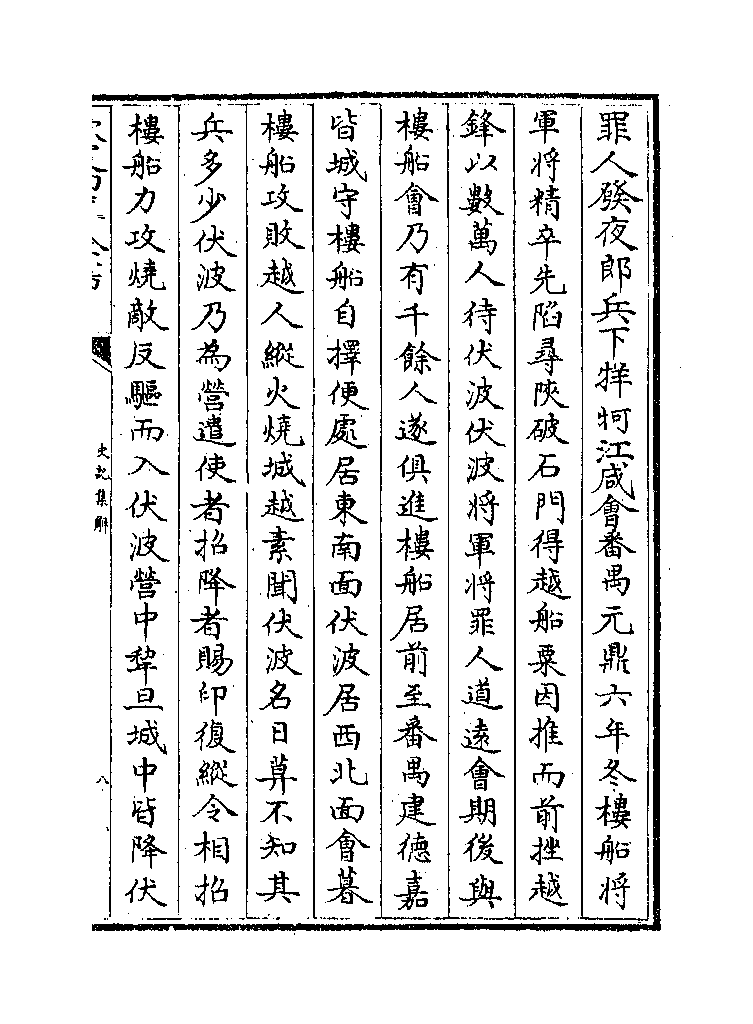 罪人發夜郎兵下牂牁江咸會番禺元鼎六年冬樓船將
軍將精卒先陷尋陜破石門得越船粟因推而前挫越
鋒以數萬人待伏波伏波將軍將罪人道遠會期後與
樓船會乃有千餘人遂俱進樓船居前至番禺建德嘉
皆城守樓船自擇便處居東南面伏波居西北面會暮
樓船攻敗越人縱火燒城越素聞伏波名日莫不知其
兵多少伏波乃為營遣使者招降者賜印復縱令相招
樓船力攻燒敵反驅而入伏波營中犂旦城中皆降伏
史記集解
八